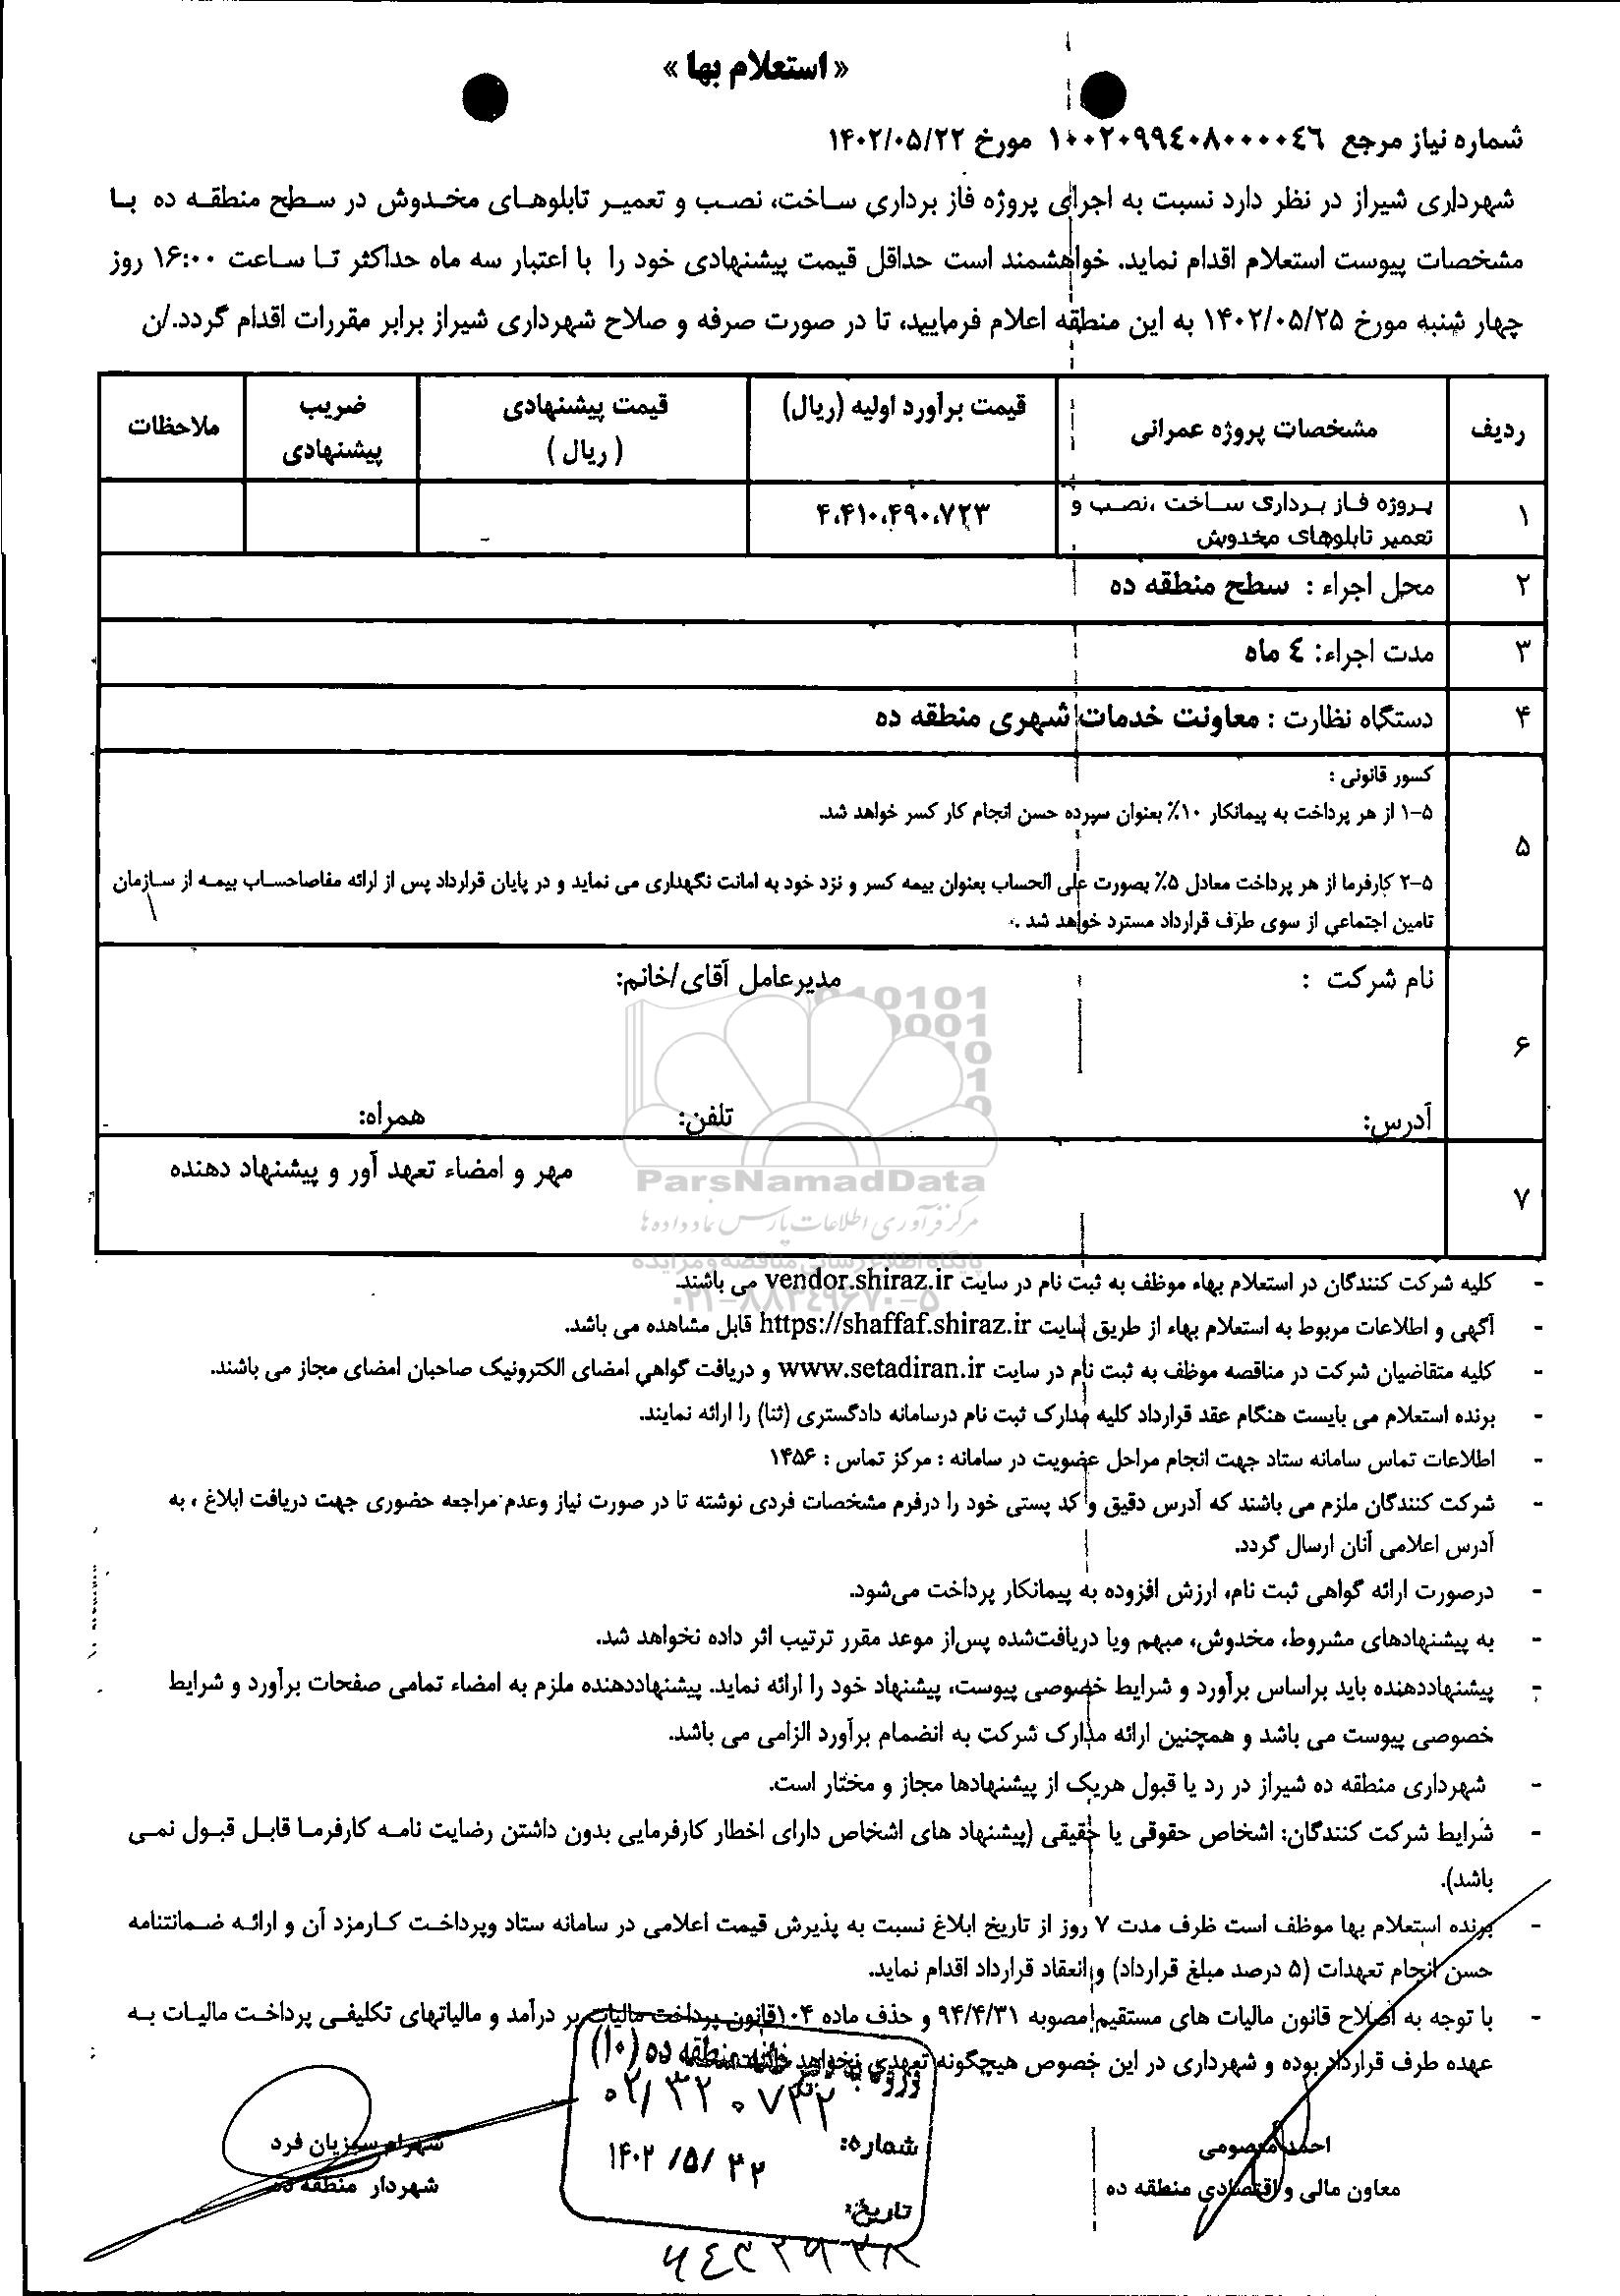 « استعلام بها »
شماره نیاز مرجع ١٠٠٢٠٩٩٤٠٨٠٠٠٠٤٦ مورخ ۱۴۰۲/۰۵/۲۲
شهرداری شیراز در نظر دارد نسبت به اجرای پروژه فاز برداری ساخت، نصب و تعمیر تابلوهای مخدوش در سطح منطقه ده با
مشخصات پیوست استعلام اقدام نماید. خواهشمند است حداقل قیمت پیشنهادی خود را با اعتبار سه ماه حداکثر تا ساعت ۱۶:۰۰ روز
چهار شنبه مورخ ۱۴۰۲/۰۵/۲۵ به این منطقه اعلام فرمایید، تا در صورت صرفه و صلاح شهرداری شیراز برابر مقررات اقدام گردد./ن
ردیف مشخصات پروژه عمرانی قیمت برآورد اولیه (ریال) قیمت پیشنهادی (ریال) ضریب پیشنهادی ملاحظات
۱ پروژه فاز برداری ساخت ،نصب و تعمیر تابلوهای مخدوش ۴،۴۱۰،۴۹۰،۷۲۳
۲ محل اجراء : سطح منطقه ده
۳ مدت اجراء: ٤ ماه
۴ دستگاه نظارت : معاونت خدمات شهری منطقه ده
۵ کسور قانونی :
۵-۱ از هر پرداخت به پیمانکار ۱۰٪ بعنوان سپرده حسن انجام کار کسر خواهد شد.
۵-۲ کارفرما از هر پرداخت معادل ۵٪ بصورت علی الحساب بعنوان بیمه کسر و نزد خود به امانت نگهداری می نماید و در پایان قرارداد پس از ارائه مفاصاحساب بیمه از سازمان
تامین اجتماعی از سوی طرف قرارداد مسترد خواهد شد .
۶ نام شرکت : مدیرعامل آقای/خانم:
آدرس: تلفن: همراه:
۷ مهر و امضاء تعهد آور و پیشنهاد دهنده
ParsNamadData
مرکز فرآوری اطلاعات پارس نماد داده ها
پایگاه اطلاع رسانی مناقصه و مزایده
۰۲۱-۸۸۳۴۹۶۷۰-۵
- کلیه شرکت کنندگان در استعلام بهاء موظف به ثبت نام در سایت vendor.shiraz.ir می باشند.
- آگهی و اطلاعات مربوط به استعلام بهاء از طریق سایت https://shaffaf.shiraz.ir قابل مشاهده می باشد.
- کلیه متقاضیان شرکت در مناقصه موظف به ثبت نام در سایت www.setadiran.ir و دریافت گواهی امضای الکترونیک صاحبان امضای مجاز می باشند.
- برنده استعلام می بایست هنگام عقد قرارداد کلیه مدارک ثبت نام درسامانه دادگستری (ثنا) را ارائه نمایند.
- اطلاعات تماس سامانه ستاد جهت انجام مراحل عضویت در سامانه : مرکز تماس : ۱۴۵۶
- شرکت کنندگان ملزم می باشند که آدرس دقیق و کد پستی خود را درفرم مشخصات فردی نوشته تا در صورت نیاز وعدم مراجعه حضوری جهت دریافت ابلاغ ، به
آدرس اعلامی آنان ارسال گردد.
- درصورت ارائه گواهی ثبت نام، ارزش افزوده به پیمانکار پرداخت می‌شود.
- به پیشنهادهای مشروط، مخدوش، مبهم ویا دریافت‌شده پس‌از موعد مقرر ترتیب اثر داده نخواهد شد.
- پیشنهاددهنده باید براساس برآورد و شرایط خصوصی پیوست، پیشنهاد خود را ارائه نماید. پیشنهاددهنده ملزم به امضاء تمامی صفحات برآورد و شرایط
خصوصی پیوست می باشد و همچنین ارائه مدارک شرکت به انضمام برآورد الزامی می باشد.
- شهرداری منطقه ده شیراز در رد یا قبول هریک از پیشنهادها مجاز و مختار است.
- شرایط شرکت کنندگان: اشخاص حقوقی یا حقیقی (پیشنهاد های اشخاص دارای اخطار کارفرمایی بدون داشتن رضایت نامه کارفرما قابل قبول نمی
باشد).
- برنده استعلام بها موظف است ظرف مدت ۷ روز از تاریخ ابلاغ نسبت به پذیرش قیمت اعلامی در سامانه ستاد وپرداخت کارمزد آن و ارائه ضمانتنامه
حسن انجام تعهدات (۵ درصد مبلغ قرارداد) و انعقاد قرارداد اقدام نماید.
- با توجه به اصلاح قانون مالیات های مستقیم مصوبه ۹۴/۴/۳۱ و حذف ماده ۱۰۴قانون پرداخت مالیات بر درآمد و مالیاتهای تکلیفی پرداخت مالیات به
عهده طرف قرارداد بوده و شهرداری در این خصوص هیچگونه تعهدی نخواهد
منطقه ده (۱۰)
شماره:
تاریخ: ۱۴۰۲/۵/۲۲
احمد معصومی
معاون مالی و اقتصادی منطقه ده
شهرام سبزیان فرد
شهردار منطقه ده